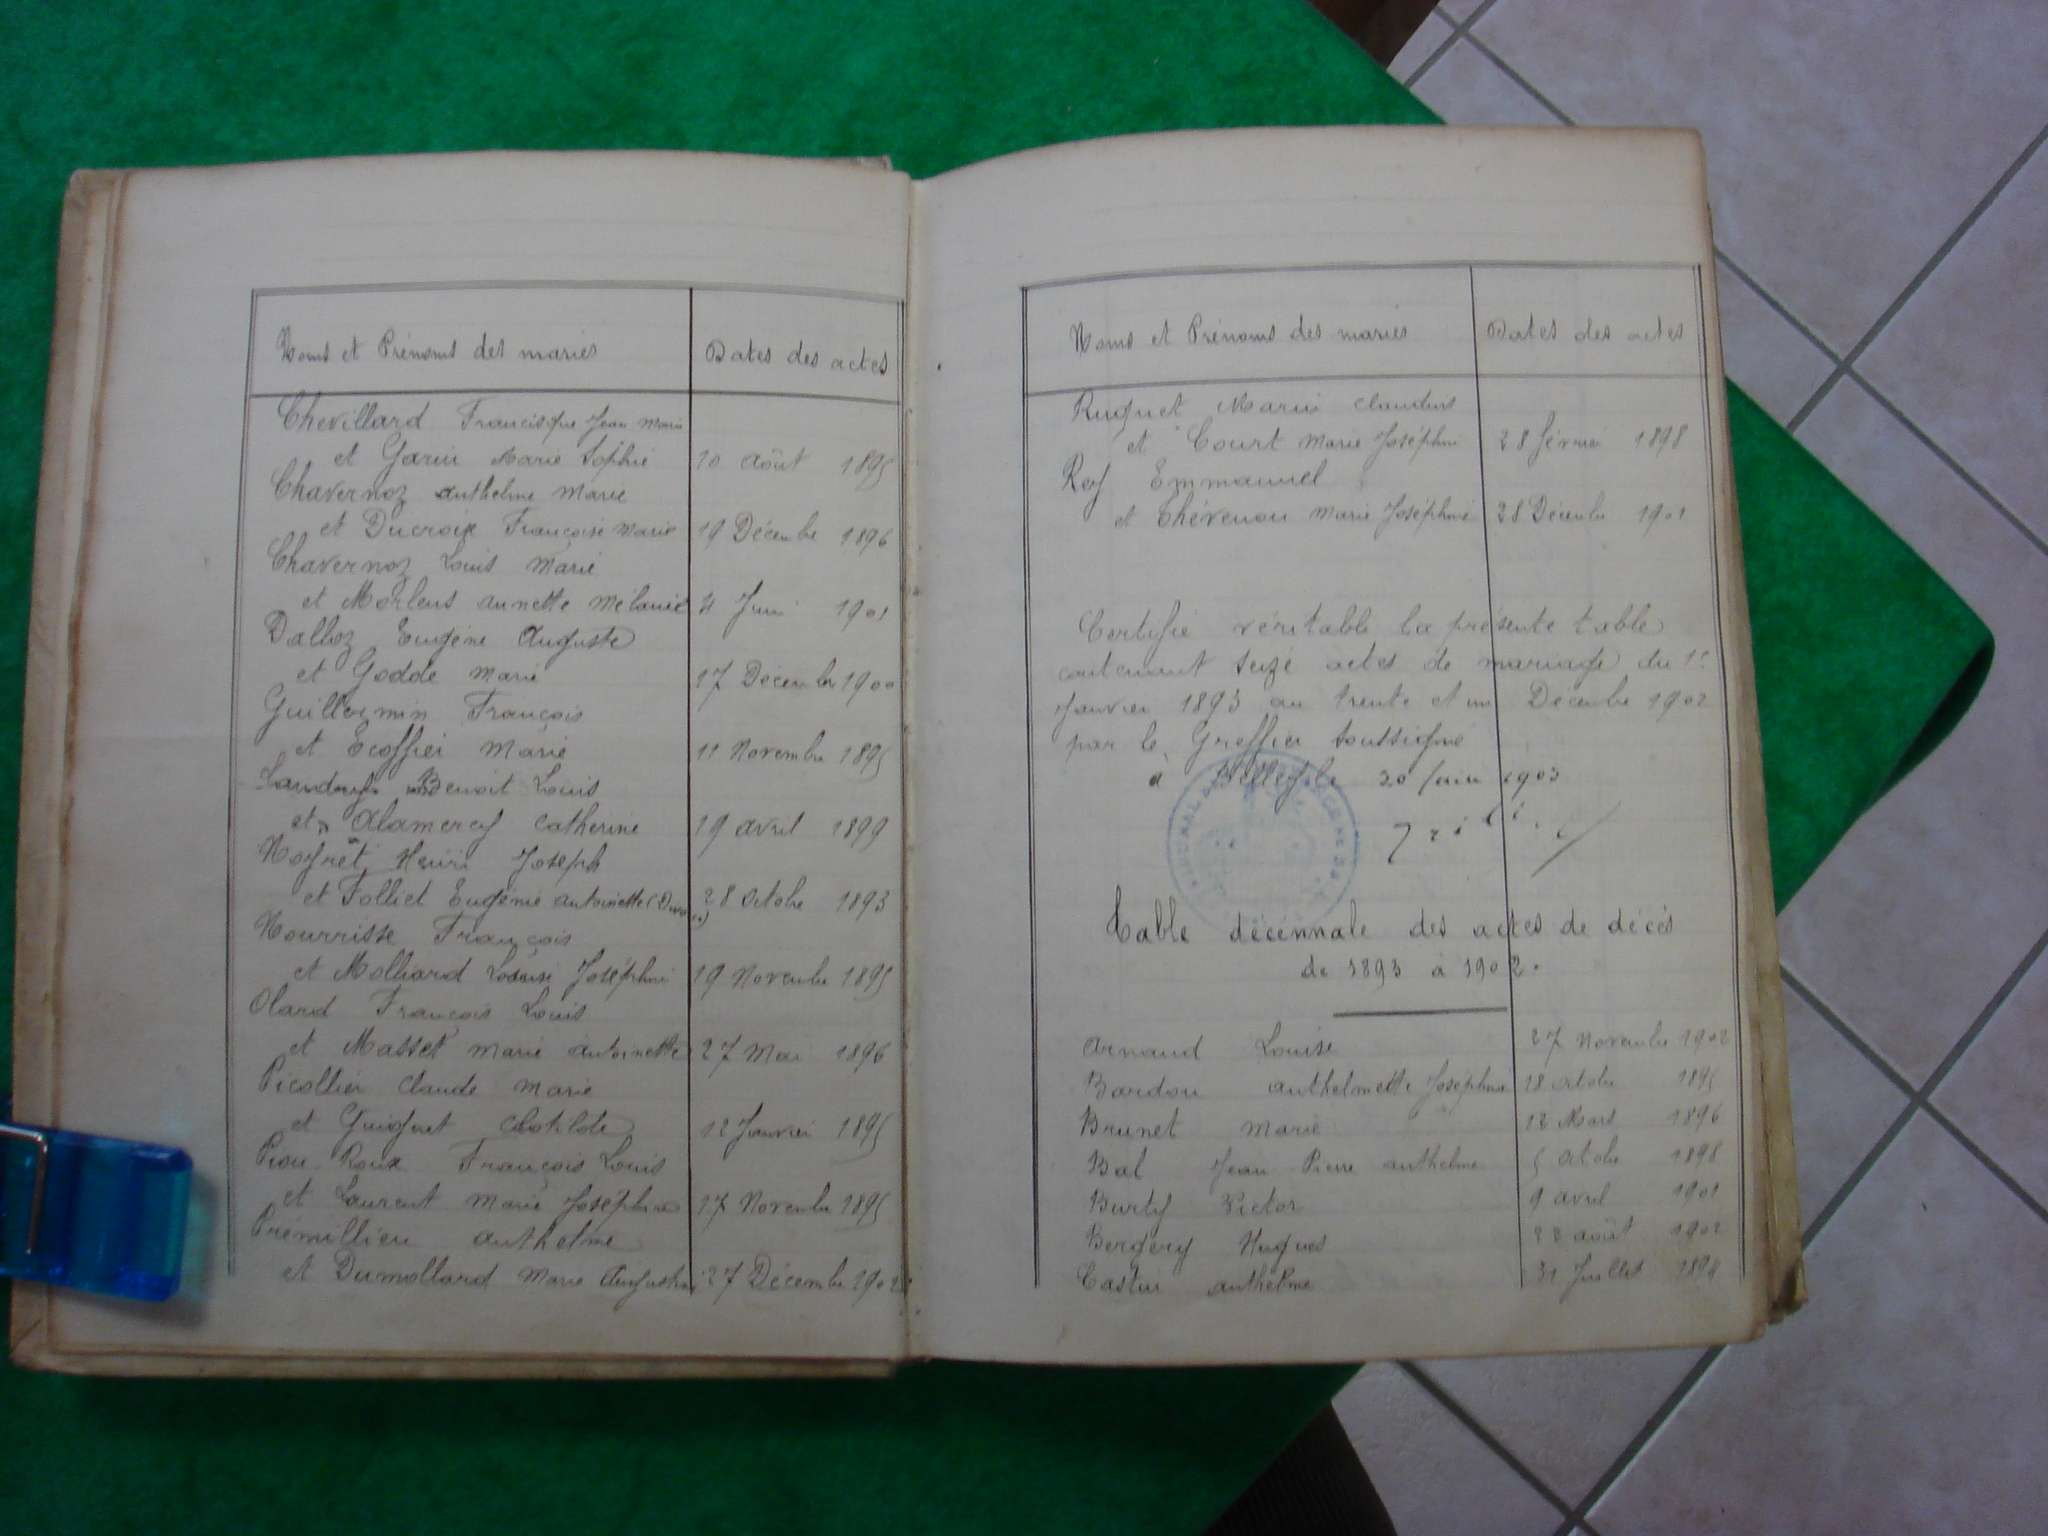 Noms et Prénoms des mariés
Dates des actes
Chevillard Francisque Jean Marie
et Garin Marie Sophie 10 août 1895
Chavernoz anthelme Marie
et Ducroix Françoise Marie 19 Décembre 1896
Chavernoz Louis Marie
et Morlens annette Mélanie 4 Juin 1901
Dalloz Eugène Auguste
et Godde Marie 17 Décembre 1900
Guillermin François
et Ecoffier Marie 11 Novembre 1895
Landry Benoit Louis
et Alamercy Catherine 19 avril 1899
Noyret Henri Joseph
et Folliet Eugénie antoinette 28 octobre 1893
Nourrisse François
et Molliard Louise Joséphine 19 Novembre 1895
Olard François Louis
et Masset Marie antoinette 27 Mai 1896
Picollier Claude Marie
et Guiguet Clotilde 12 Janvier 1895
Piou Roux François Louis
et Laurent Marie Joséphine 17 Novembre 1895
Prémillieu anthelme
et Dumollard Marie Augustine 27 Décembre 1902
Noms et Prénoms des mariés
Dates des actes
Ruguet Marin Claudius
et Court Marie Joséphine 28 février 1898
Rey Emmanuel
et Thévenon Marie Joséphine 28 Décembre 1901
Certifié véritable la présente table
contenant seize actes de mariage du 1er
Janvier 1893 au trente et un Décembre 1902
par le Greffier soussigné
à Belley le 20 Juin 1903
Table décennale des actes de décès
de 1893 à 1902.
Arnaud Louise 27 Novembre 1902
Bardou anthelmette Joséphine 28 octobre 1895
Brunet Marie 12 Mars 1896
Bal Jean Pierre anthelme 5 octobre 1898
Burty Victor 9 avril 1901
Bergery Hugues 22 août 1902
Castin anthelme 31 Juillet 1894